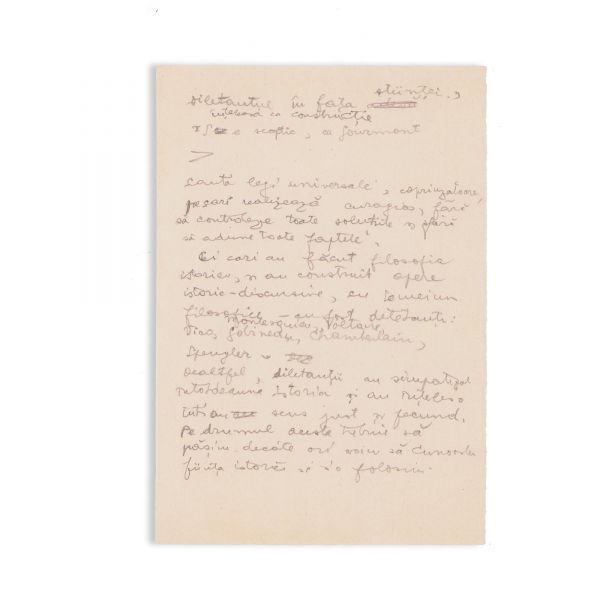 Diletantul în fața științei.
ca construcție
e sceptic, ca Gourmont
caută legi universale, cuprinzătoare
pe cari realizează curagios, fără
să controleze toate soluțiile și fără
să adune toate faptele.
Ci cari au făcut filosofia
istoriei, și au construit opere
istorico-discursive, cu
filosofice - au fost diletanți:
Montesquieu, Voltaire
Vico, Gobineau, Chamberlain,
Spengler
Dealtfel, diletanții au simpatizat
totdeauna Istoria și au
sens just și fecund.
Pe drumul acesta trebuie să
pășim decâte ori voim să cunoaștem
ființa istoriei și s'o folosim.